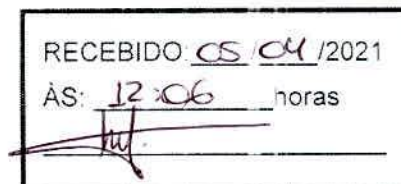 RECEBIDO: 05/04/2021
ÀS: 12:06 horas